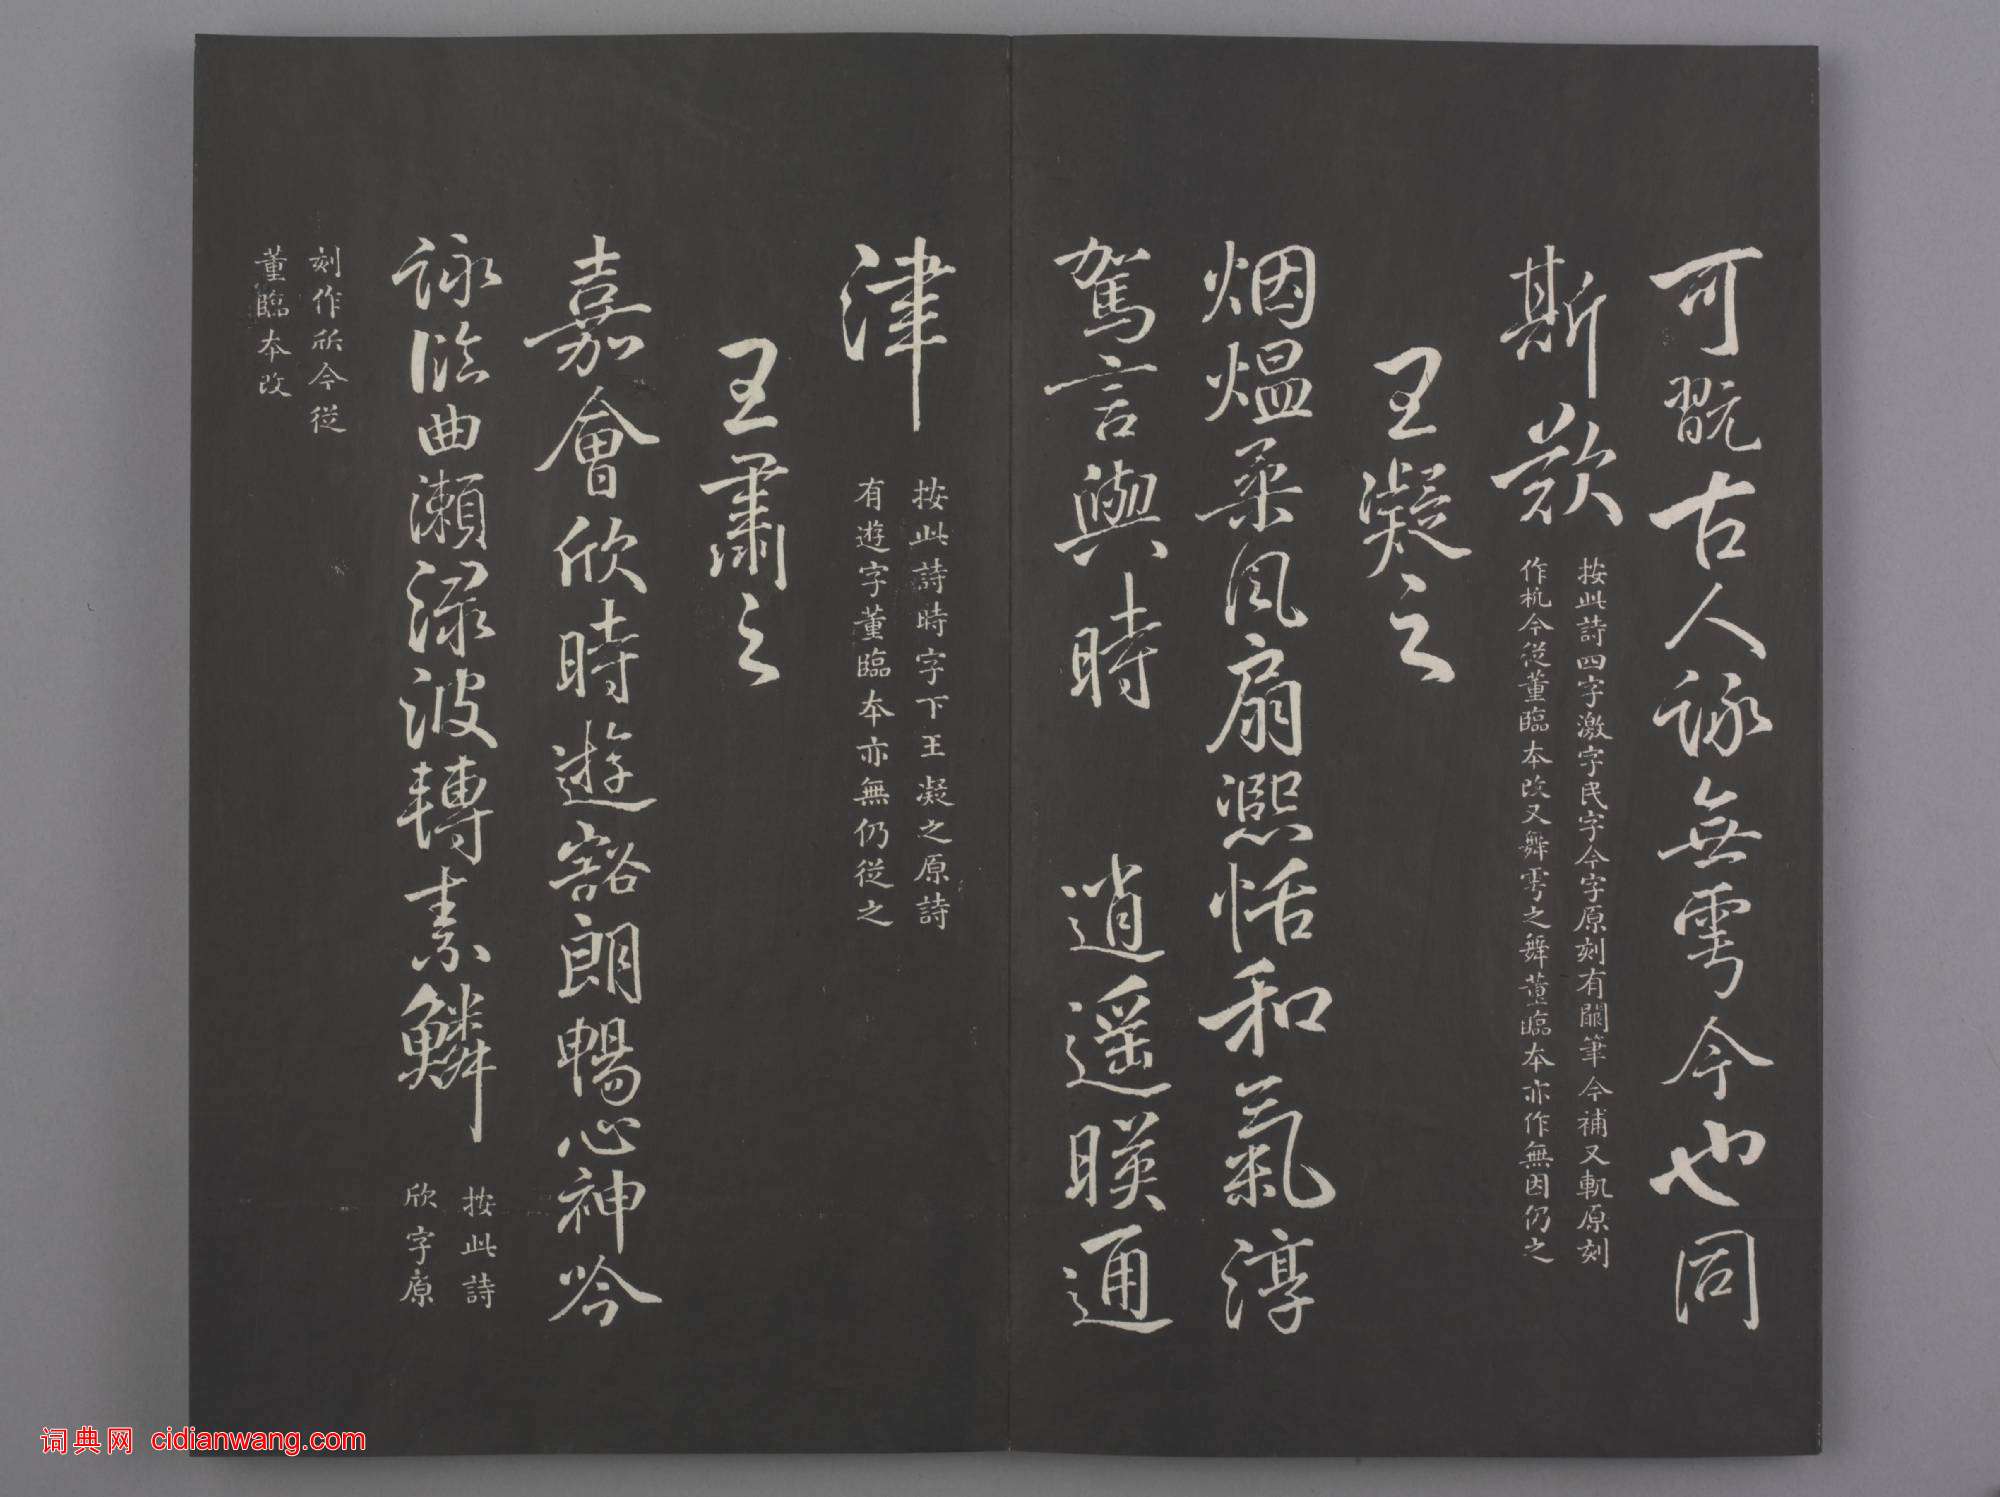 可翫古人詠無雩今也同
斯歎
按此詩四字激字民字今字原刻有闕筆今補又軏原刻
作杭今從董臨本改又舞雩之舞董臨本亦作無因仍之
王凝之
烟熅柔風扇凞恬和氣淳
駕言與時 逍遥暎通
津
按此詩時字下王凝之原詩
有遊字董臨本亦無仍從之
王肅之
嘉會欣時遊豁朗暢心神吟
詠臨曲瀬渌波轉素鱗
按此詩
欣字原
刻作㸝今從
董臨本改
词典网 cidianwang.com